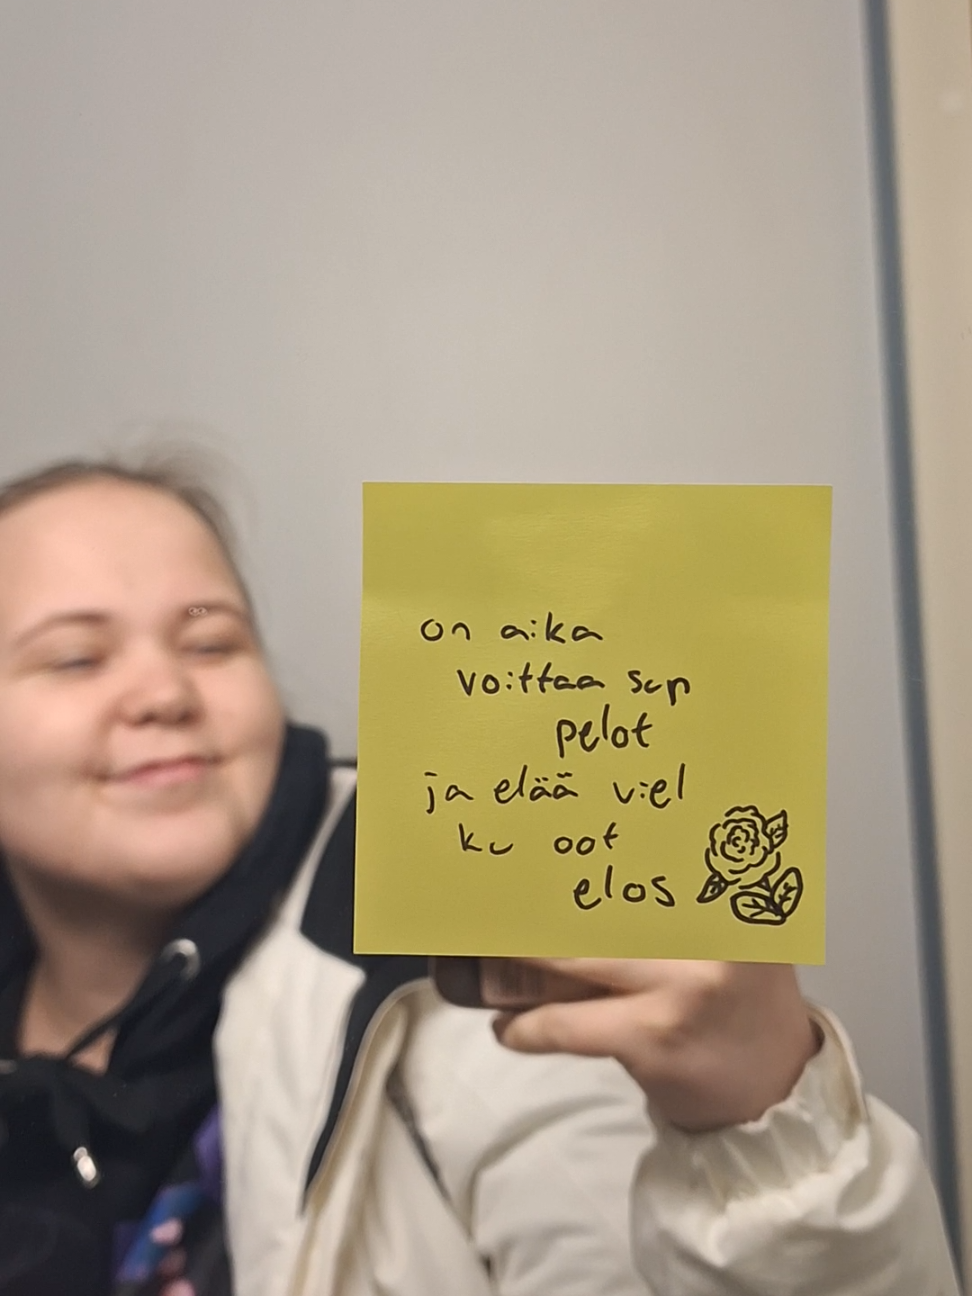 on aika
voittaa sun
pelot
ja elää viel
ku oot
elos